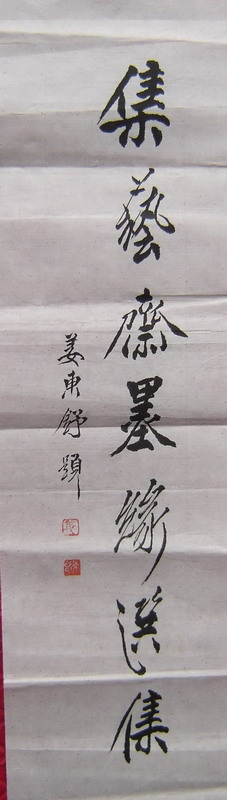 集藝齋墨緣選集
姜東舒題